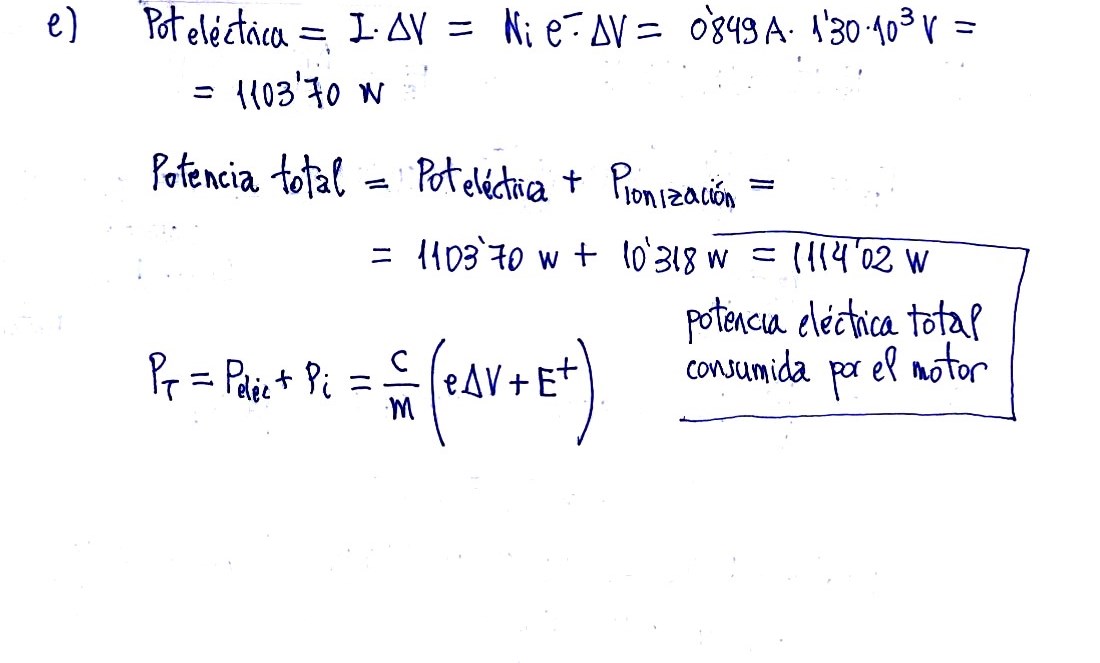 e) Pot eléctrica = I·ΔV = Ni e⁻·ΔV = 0'849 A · 1'30·10³ V =
= 1103'70 W
Potencia total = Pot eléctrica + Pionización =
= 1103'70 W + 10'318 W = 1114'02 W
potencia eléctrica total
consumida por el motor
P_T = P_eléc + P_i = C/m (eΔV + E⁺)